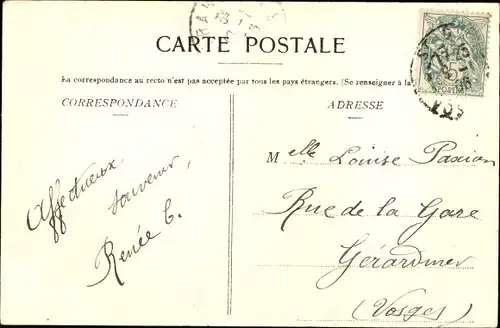 CARTE POSTALE
La correspondance au recto n'est pas acceptée par tous les pays étrangers. (Se renseigner à la
CORRESPONDANCE
ADRESSE
Affectueux
souvenir,
Renée C.
Melle Louise
Rue de la Gare
Gérardmer
(Vosges)